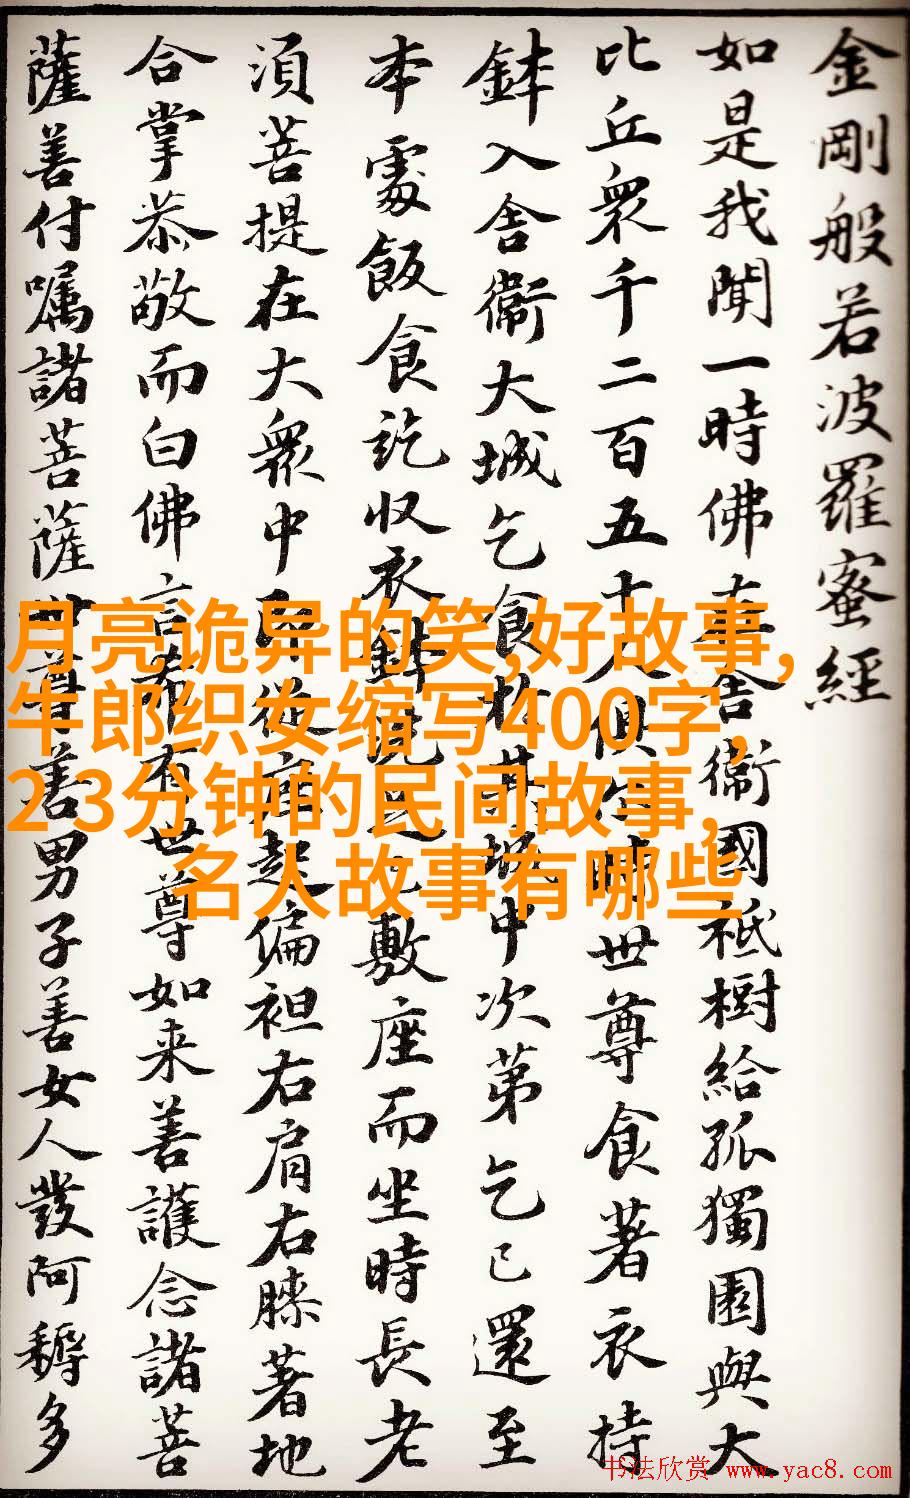 金剛般若波羅蜜經
如是我聞一時佛在舍衛國祇樹給孤獨園與大
比丘衆千二百五十人俱尒時世尊食著衣持
鉢入舍衛大城乞食於其城中次第乞已還至
本處飯食訖収衣鉢洗足已敷座而坐時長老
須菩提在大衆中即從座起偏袒右肩右膝著地
合掌恭敬而白佛言希有世尊如来善護念諸菩
薩善付囑諸菩薩世尊善男子善女人發阿耨多
月亮诡异的笑,好故事,
牛郎织女缩写400字,
2 3分钟的民间故事,
名人故事有哪些
书法欣赏 www.yac8.com